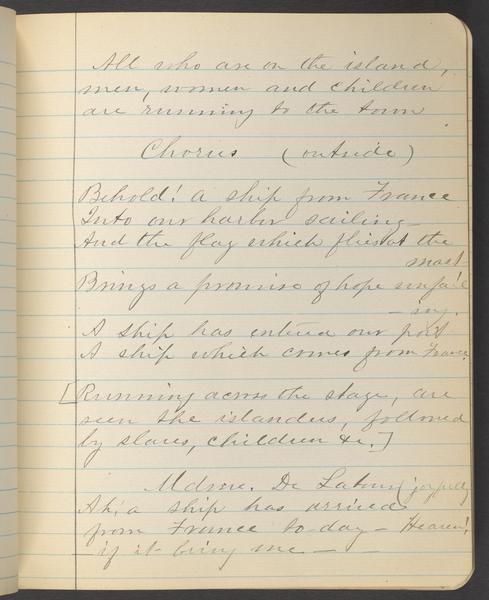 All who are on the island,
men, women and children
are running to the town
Chorus (outside)
Behold! a ship from France
Into our harbor sailing
And the flag which flies at the
mast
Brings a promise of hope unfail
-ing.
A ship has entered our port
A ship which comes from France
[Running across the stage, are
seen the islanders, followed
by slaves, children &c.]
Mdme. De Latour (joyfully)
Ah! a ship has arrived
from France to-day — Heaven!
— if it bring me — —